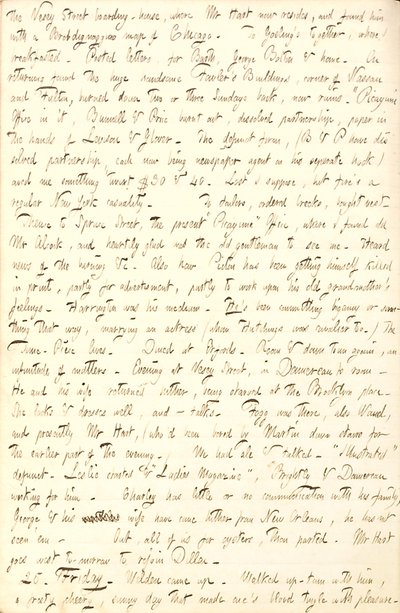 the Vesey Street boarding-house, where Mr Hart now resides, and found him
with a Brobdignagian map of Chicago. To Gosling's together, where I
breakfasted. Posted letters, for Barth, George Bolton & home. On
returning found the huge handsome Fowler's Buildings, corner of Nassau
and Fulton, burned down two or three Sundays back, now ruins. "Picayune
Office in it. Bunnell & Price burnt out, dissolved partnership, paper in
the hands of Larason & Glover. The defunct firm, (B & P have dis
solved partnership, each now being newspaper agent on his separate hook)
owed me something twixt $30 & 40. Lost I suppose, but fire's a
regular New York casualty. To tailors, ordered breeks, bought vest.
Thence to Spruce Street, the present "Picayune" Office, where I found old
Mr and heartily glad was the old gentleman to see me. Heard
news of the burning &c. Also how Picton has been getting himself kicked
in print, partly for advertisement, partly to work upon his old grandmother's
feelings. Harrington was his medium. He's been committing bigamy or some-
thing that way, marrying an actress (whom Hutchings was familiar to.) The
Time-Piece lives. Dined at Room & down town again, an
infinitude of matters. Evening at Vesey Street, in Damoreau's room.
He and his wife returned hither, being starved at the Brooklyn place.
She looks & dresses well, and - talks. Fogg was there, also Waud,
and presently Mr Hart, (who'd been bored by Martin down stairs for
the earlier part of the evening.) We had ale & talked. "Illustrated"
defunct. Leslie started "Ladies Magazine", Brightly & Damoreau
working for him. Charley has little or no communication with his family,
George & his wife have come hither from New Orleans, he has not
seen em. Out all of us for oysters, then parted. Mr Hart
goes west to-morrow to rejoin Dillon.
20. Friday. Welden came up. Walked up-town with him,
a frosty cheery, sunny day that made one's blood tingle with pleasure.